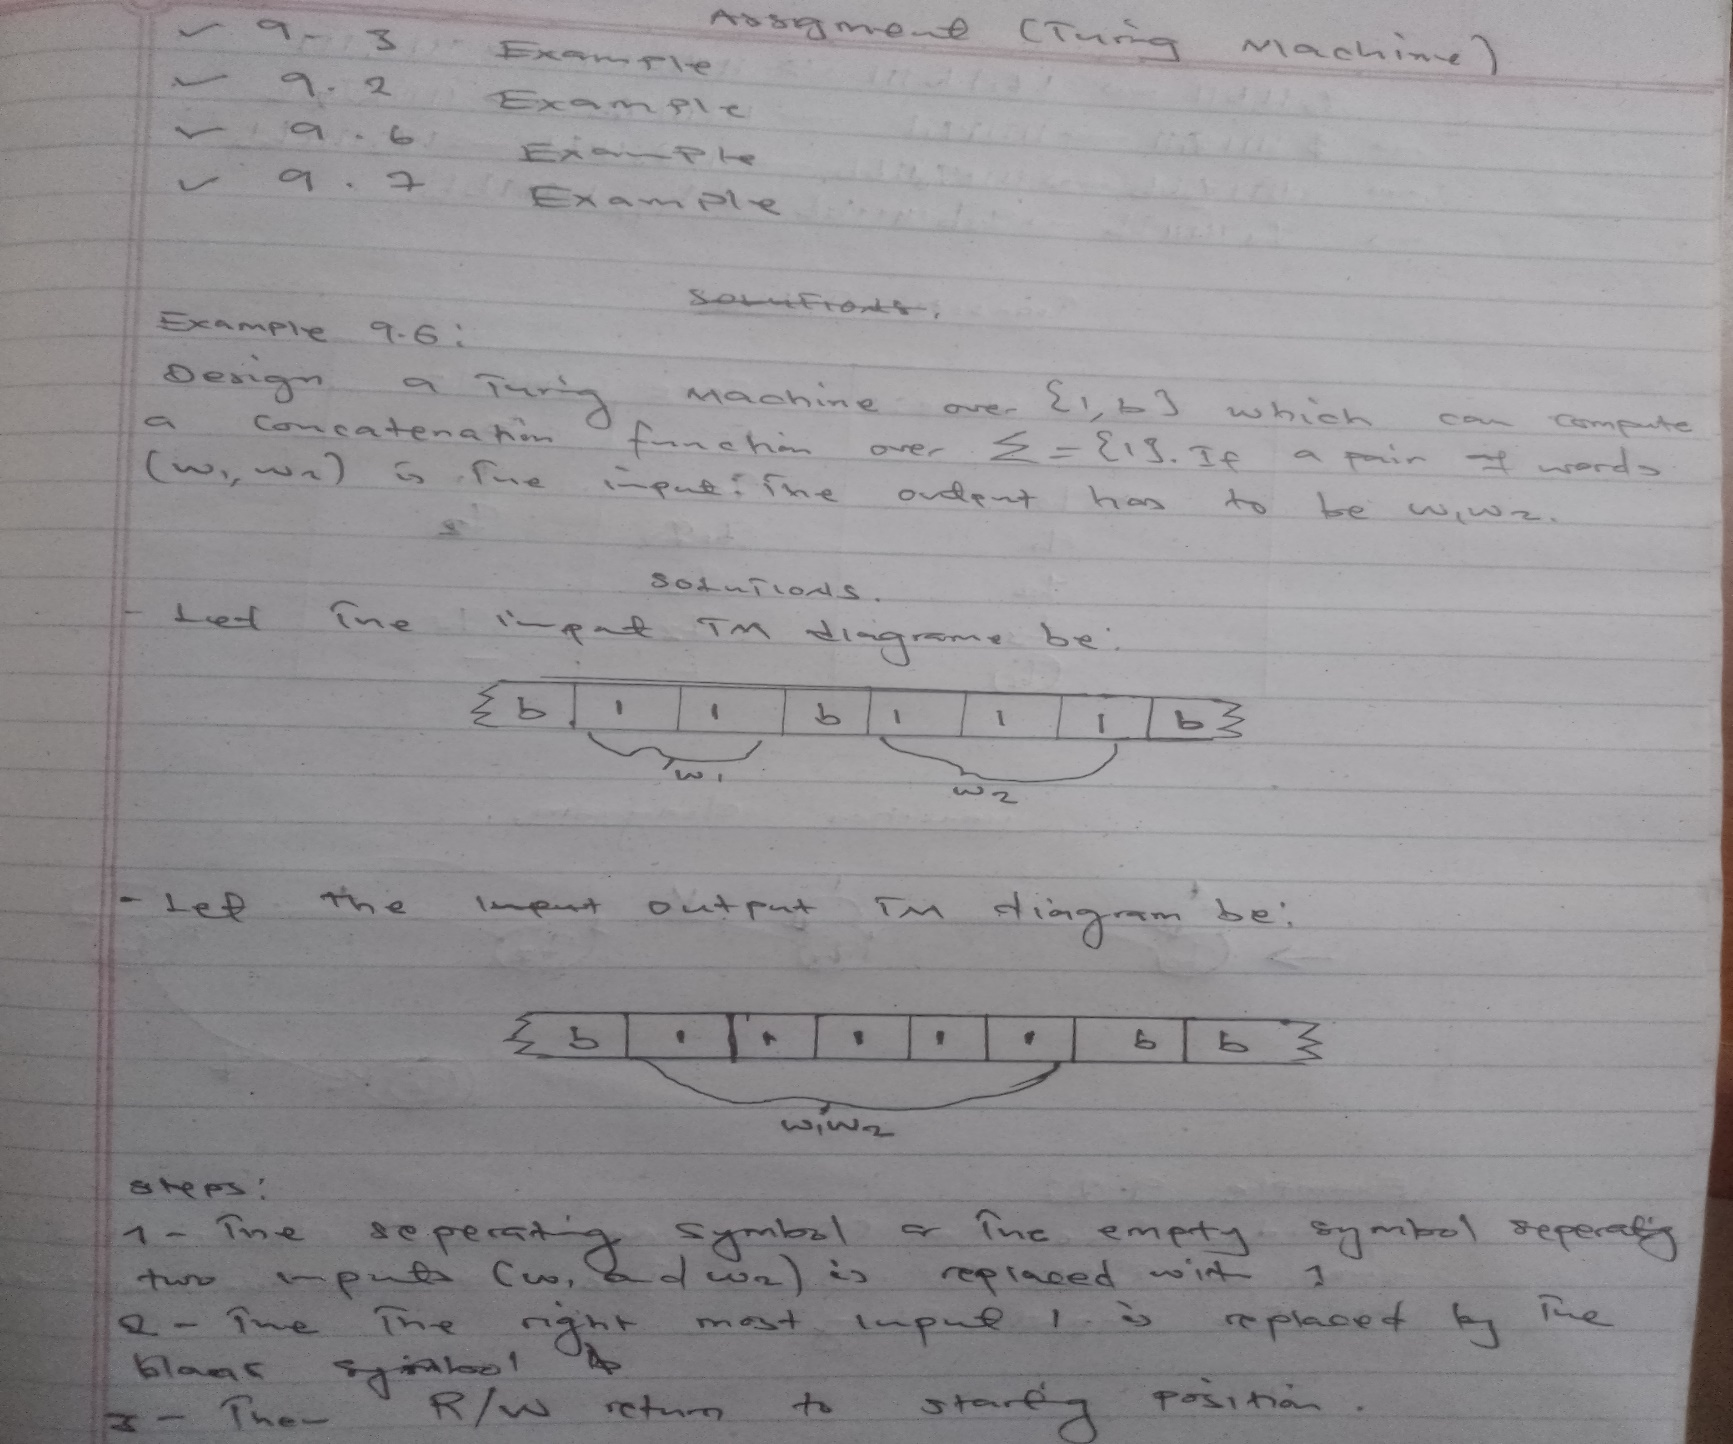 Assgment (Turing Machine)
✓ 9-3 Example
✓ 9.2 Example
✓ 9.6 Example
✓ 9.7 Example
Solutions.
Example 9.6:
Design a Turing Machine over {1,b} which can compute
a concatenation function over Σ = {1}. If a pair of words
(w1, w2) is the input. The output has to be w1w2.
Solutions.
- Let the input TM diagrame be:
b 1 1 b 1 1 1 b
w1 w2
- Let the input output TM diagram be:
b 1 1 1 1 1 b b
w1w2
steps:
1 - The seperating symbol or the empty symbol seperating
two inputs (w1 and w2) is replaced with 1
2 - The The right most input 1 is replaced by the
blank symbol b
3 - The R/W return to starting position.